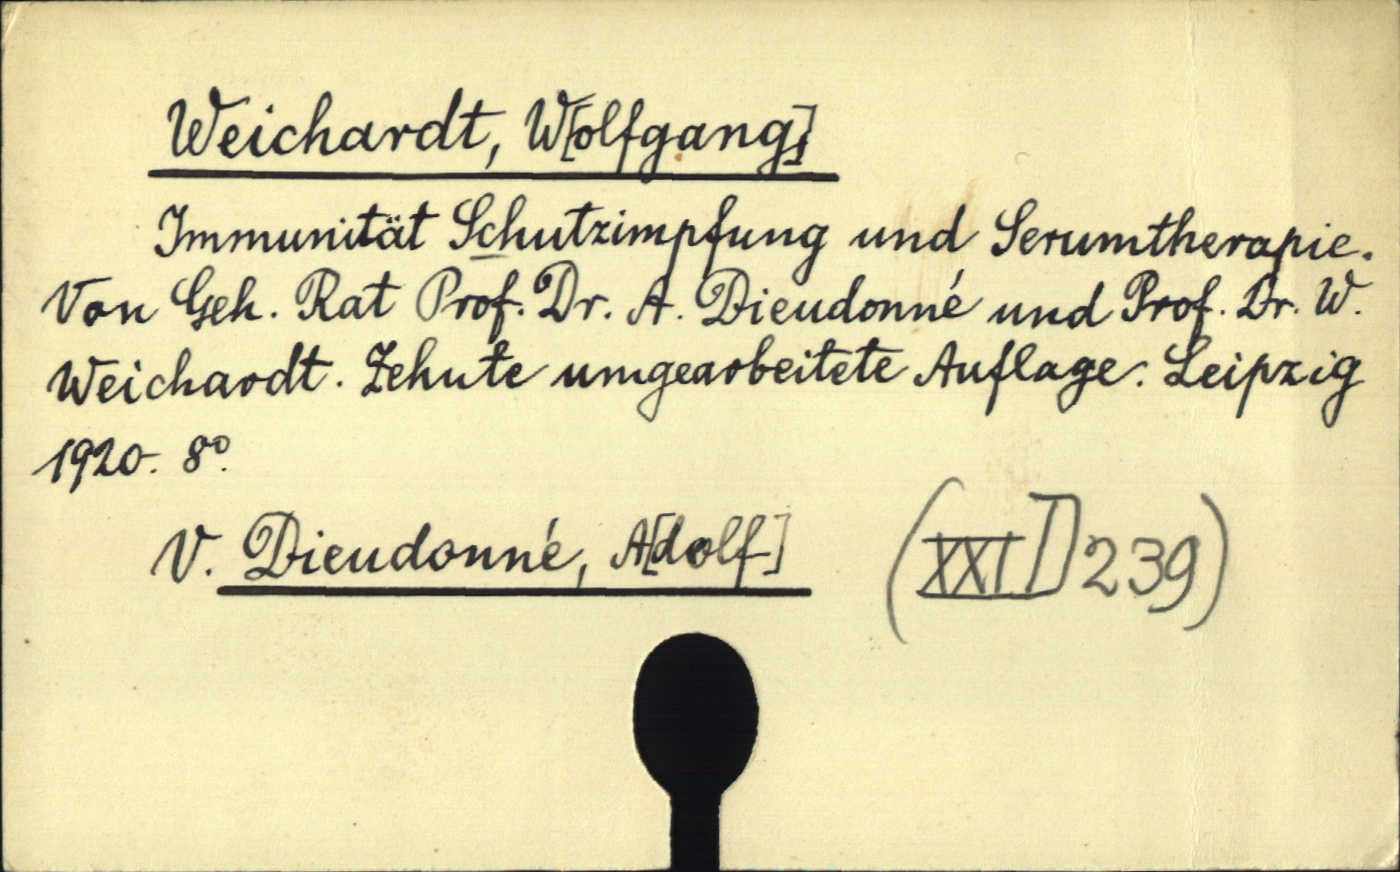 Weichardt, W[olfgang]
Immunität Schutzimpfung und Serumtherapie.
Von Geh. Rat Prof. Dr. A. Dieudonné und Prof. Dr. W.
Weichardt. Zehnte umgearbeitete Auflage. Leipzig
1920. 8°.
V. Dieudonné, A[dolf]
(XXI D 239)